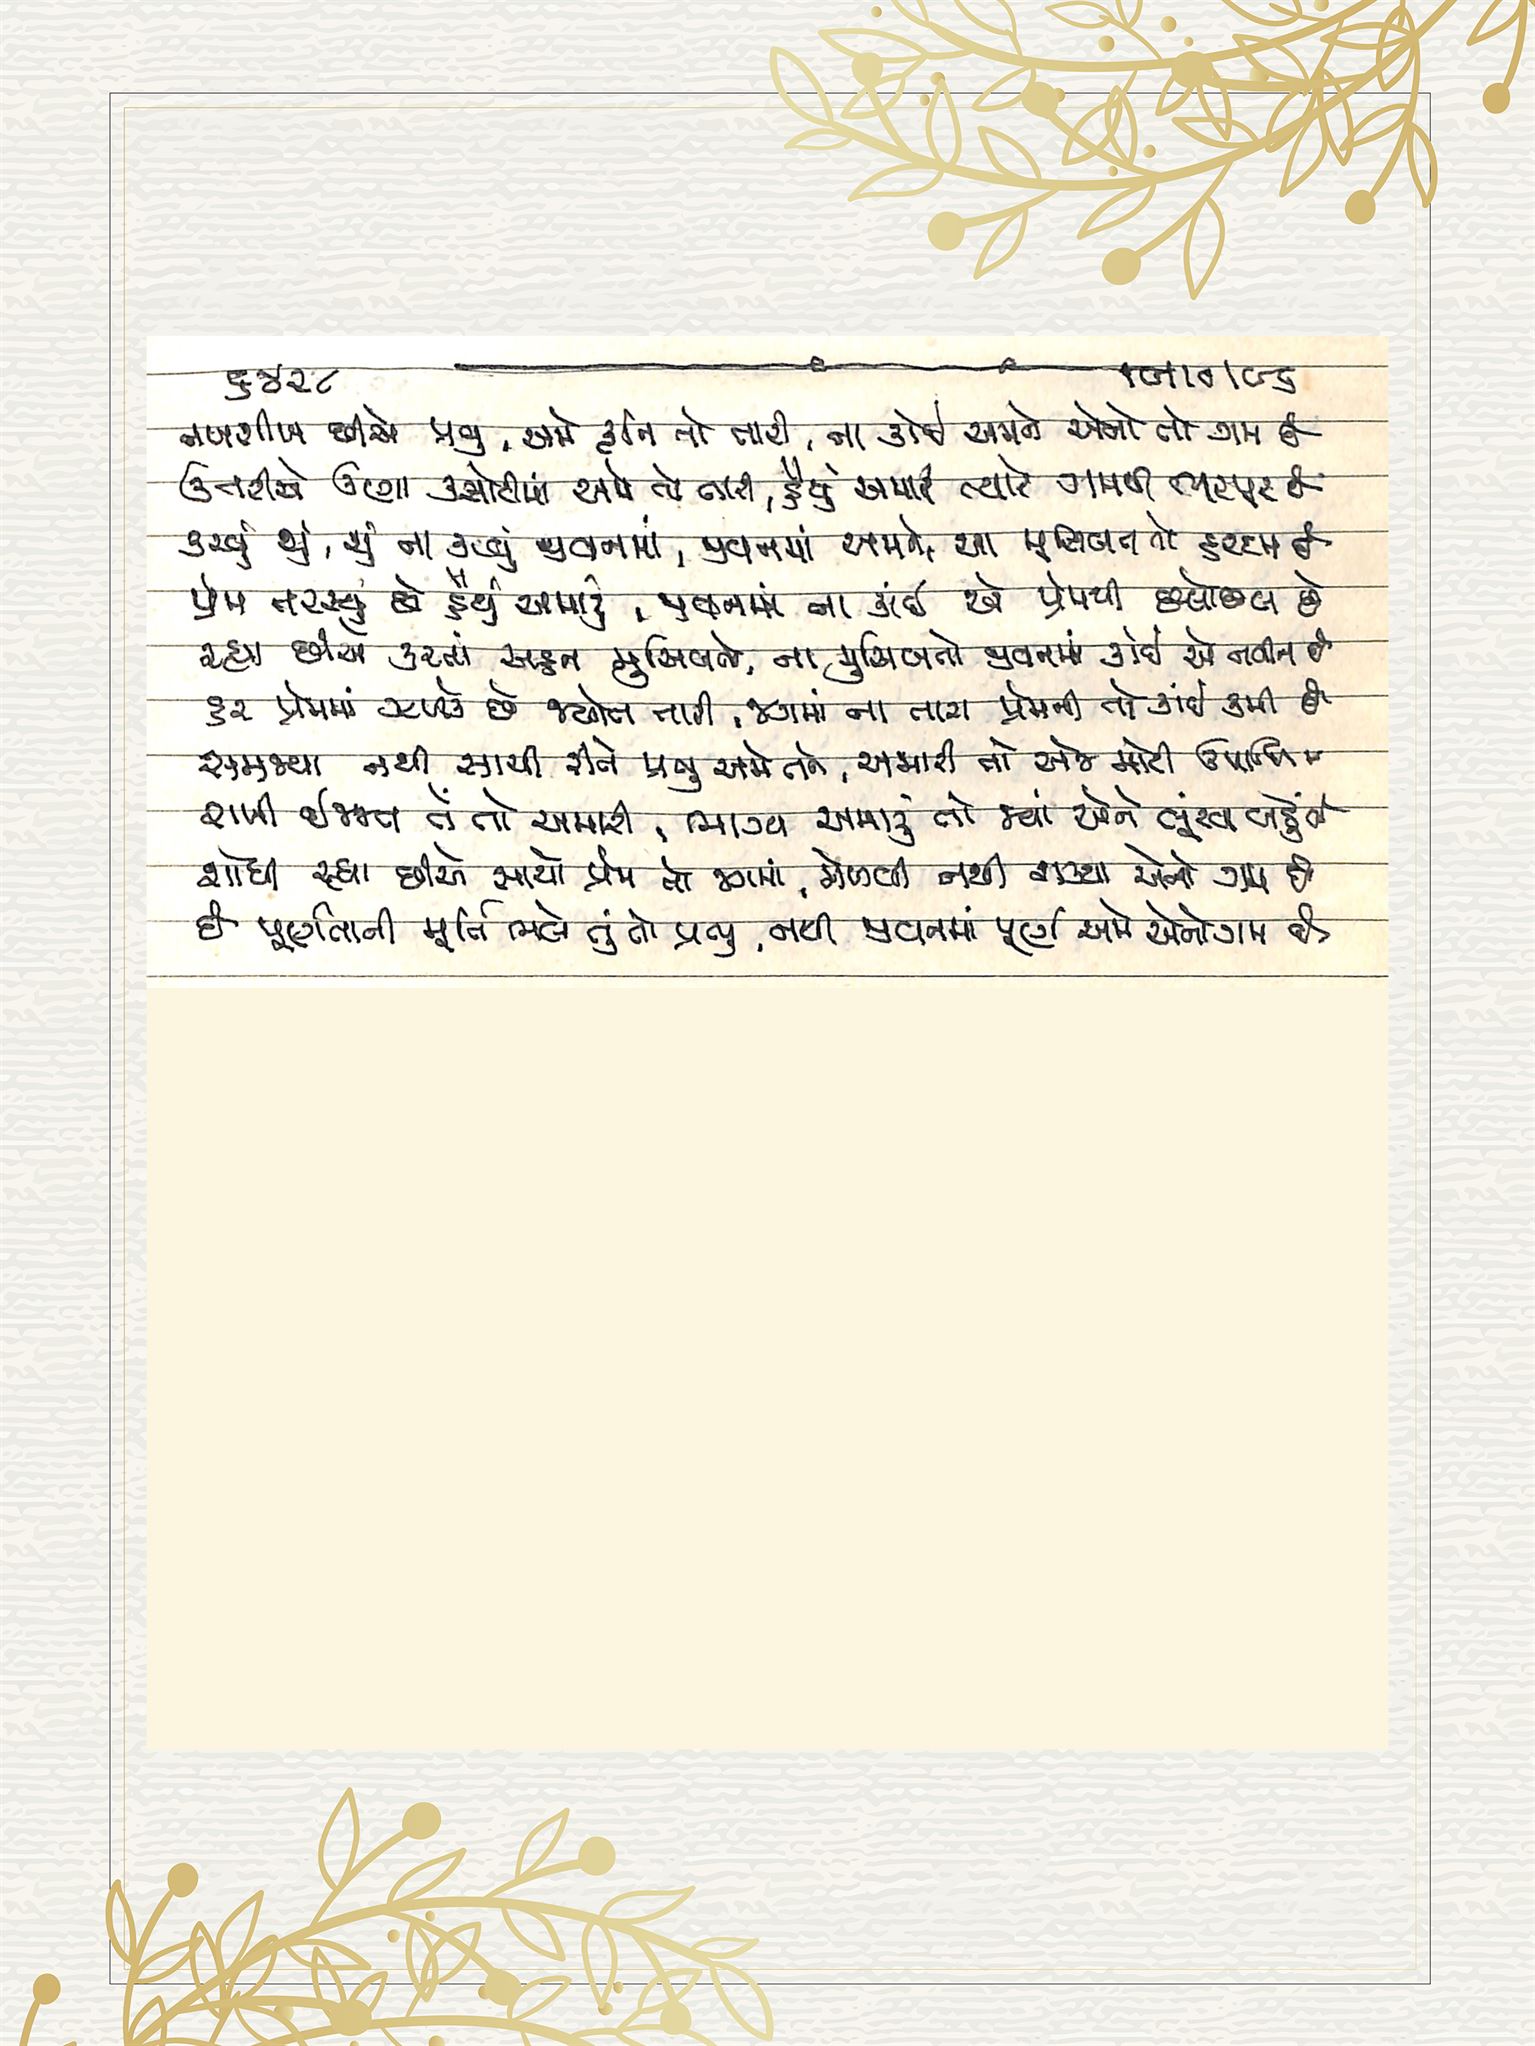 ૬૪૨૮
નખશીખ છીએ પ્રભુ, અમે કૃતિ તો તારી, ના કોઈ અમને એનો તો ગમ છે
ઉતરીએ ઉણા કસોટીમાં અમે તો તારી, હૈયું અમારું ત્યારે ગમથી ભરપૂર છે
કરવું શું, શું ના કરવું જીવનમાં, જીવનમાં અમને, આ મુસિબત તો હરદમ છે
પ્રેમ તરસ્યું છે હૈયું અમારું, જીવનમાં ના કાંઈ એ પ્રેમથી છલોછલ છે
રહ્યા છીએ કરતાં સહન મુસિબતો, ના મુસિબતો જીવનમાં કોઈ એ નવીન છે
હર પ્રેમમાં ઝળકે છે જ્યોત તારી, જગમાં ના તારા પ્રેમની તો કાંઈ કમી છે
સમજ્યા નથી સાચી રીતે પ્રભુ અમે તને, અમારી તો એજ મોટી ઉપાધિ છે
રાખી ઈજ્જત તેં તો અમારી, ભાગ્ય અમારું તો જ્યાં એને લૂંટતું
શોધી રહ્યા છીએ સાચો પ્રેમ તો જગમાં, મેળવી નથી શક્યા એનો ગમ છે
છે પૂર્ણતાની મૂર્તિ ભલે તું તો પ્રભુ, નથી જીવનમાં પૂર્ણ અમે એનો ગમ છે